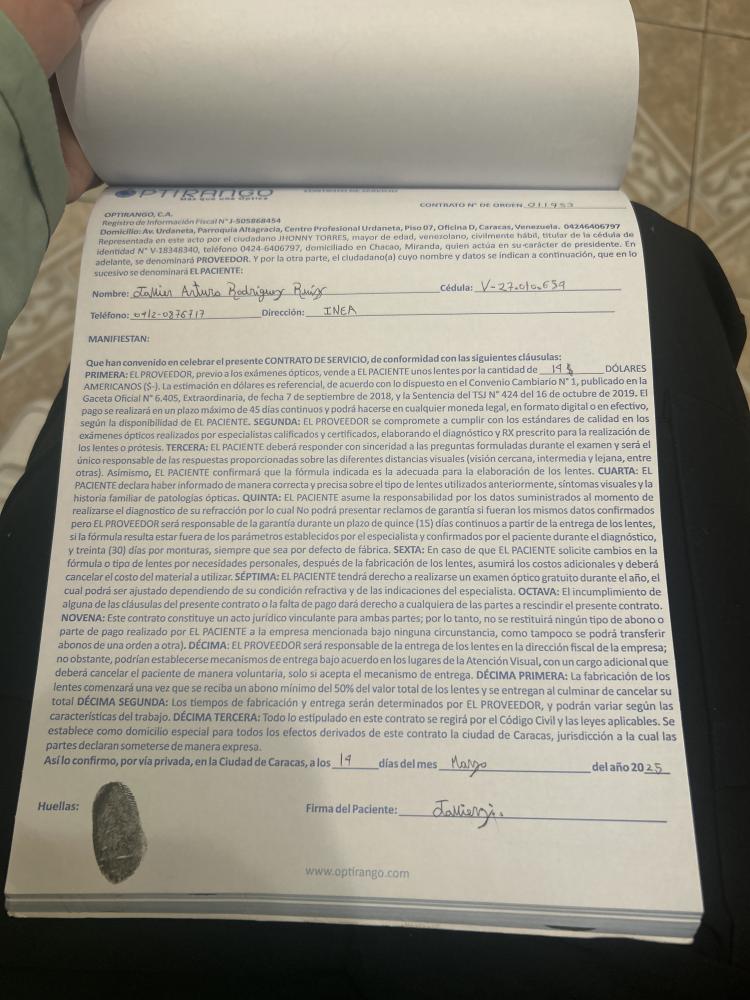 OPTIRANGO
Más que una Óptica
CONTRATO DE SERVICIO
CONTRATO N° DE ORDEN 011953
OPTIRANGO, C.A.
Registro de Información Fiscal N° J-505868454
Domicilio: Av. Urdaneta, Parroquia Altagracia, Centro Profesional Urdaneta, Piso 07, Oficina D, Caracas, Venezuela. 04246406797
Representada en este acto por el ciudadano JHONNY TORRES, mayor de edad, venezolano, civilmente hábil, titular de la cédula de
identidad N° V-18348340, teléfono 0424-6406797, domiciliado en Chacao, Miranda, quien actúa en su carácter de presidente. En
adelante, se denominará PROVEEDOR. Y por la otra parte, el ciudadano(a) cuyo nombre y datos se indican a continuación, que en lo
sucesivo se denominará EL PACIENTE:
Nombre: Javier Arturo Rodriguez Ruiz Cédula: V-27.010.659
Teléfono: 0412-0876717 Dirección: INEA
MANIFIESTAN:
Que han convenido en celebrar el presente CONTRATO DE SERVICIO, de conformidad con las siguientes cláusulas:
PRIMERA: EL PROVEEDOR, previo a los exámenes ópticos, vende a EL PACIENTE unos lentes por la cantidad de 19$ DÓLARES
AMERICANOS ($-). La estimación en dólares es referencial, de acuerdo con lo dispuesto en el Convenio Cambiario N° 1, publicado en la
Gaceta Oficial N° 6.405, Extraordinaria, de fecha 7 de septiembre de 2018, y la Sentencia del TSJ N° 424 del 16 de octubre de 2019. El
pago se realizará en un plazo máximo de 45 días continuos y podrá hacerse en cualquier moneda legal, en formato digital o en efectivo,
según la disponibilidad de EL PACIENTE. SEGUNDA: EL PROVEEDOR se compromete a cumplir con los estándares de calidad en los
exámenes ópticos realizados por especialistas calificados y certificados, elaborando el diagnóstico y RX prescrito para la realización de
los lentes o prótesis. TERCERA: EL PACIENTE deberá responder con sinceridad a las preguntas formuladas durante el examen y será el
único responsable de las respuestas proporcionadas sobre las diferentes distancias visuales (visión cercana, intermedia y lejana, entre
otras). Asimismo, EL PACIENTE confirmará que la fórmula indicada es la adecuada para la elaboración de los lentes. CUARTA: EL
PACIENTE declara haber informado de manera correcta y precisa sobre el tipo de lentes utilizados anteriormente, síntomas visuales y la
historia familiar de patologías ópticas. QUINTA: EL PACIENTE asume la responsabilidad por los datos suministrados al momento de
realizarse el diagnostico de su refracción por lo cual No podrá presentar reclamos de garantía si fueran los mismos datos confirmados
pero EL PROVEEDOR será responsable de la garantía durante un plazo de quince (15) días continuos a partir de la entrega de los lentes,
si la fórmula resulta estar fuera de los parámetros establecidos por el especialista y confirmados por el paciente durante el diagnóstico,
y treinta (30) días por monturas, siempre que sea por defecto de fábrica. SEXTA: En caso de que EL PACIENTE solicite cambios en la
fórmula o tipo de lentes por necesidades personales, después de la fabricación de los lentes, asumirá los costos adicionales y deberá
cancelar el costo del material a utilizar. SÉPTIMA: EL PACIENTE tendrá derecho a realizarse un examen óptico gratuito durante el año, el
cual podrá ser ajustado dependiendo de su condición refractiva y de las indicaciones del especialista. OCTAVA: El incumplimiento de
alguna de las cláusulas del presente contrato o la falta de pago dará derecho a cualquiera de las partes a rescindir el presente contrato.
NOVENA: Este contrato constituye un acto jurídico vinculante para ambas partes; por lo tanto, no se restituirá ningún tipo de abono o
parte de pago realizado por EL PACIENTE a la empresa mencionada bajo ninguna circunstancia, como tampoco se podrá transferir
abonos de una orden a otra). DÉCIMA: EL PROVEEDOR será responsable de la entrega de los lentes en la dirección fiscal de la empresa;
no obstante, podrían establecerse mecanismos de entrega bajo acuerdo en los lugares de la Atención Visual, con un cargo adicional que
deberá cancelar el paciente de manera voluntaria, solo si acepta el mecanismo de entrega. DÉCIMA PRIMERA: La fabricación de los
lentes comenzará una vez que se reciba un abono mínimo del 50% del valor total de los lentes y se entregan al culminar de cancelar su
total DÉCIMA SEGUNDA: Los tiempos de fabricación y entrega serán determinados por EL PROVEEDOR, y podrán variar según las
características del trabajo. DÉCIMA TERCERA: Todo lo estipulado en este contrato se regirá por el Código Civil y las leyes aplicables. Se
establece como domicilio especial para todos los efectos derivados de este contrato la ciudad de Caracas, jurisdicción a la cual las
partes declaran someterse de manera expresa.
Así lo confirmo, por vía privada, en la Ciudad de Caracas, a los 19 días del mes Marzo del año 2025
Huellas:
Firma del Paciente:
www.optirango.com